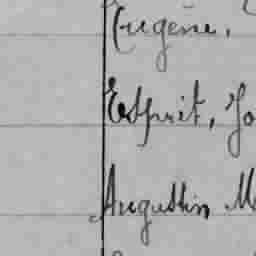 Eugène,
Esprit, Jo
Augustin M